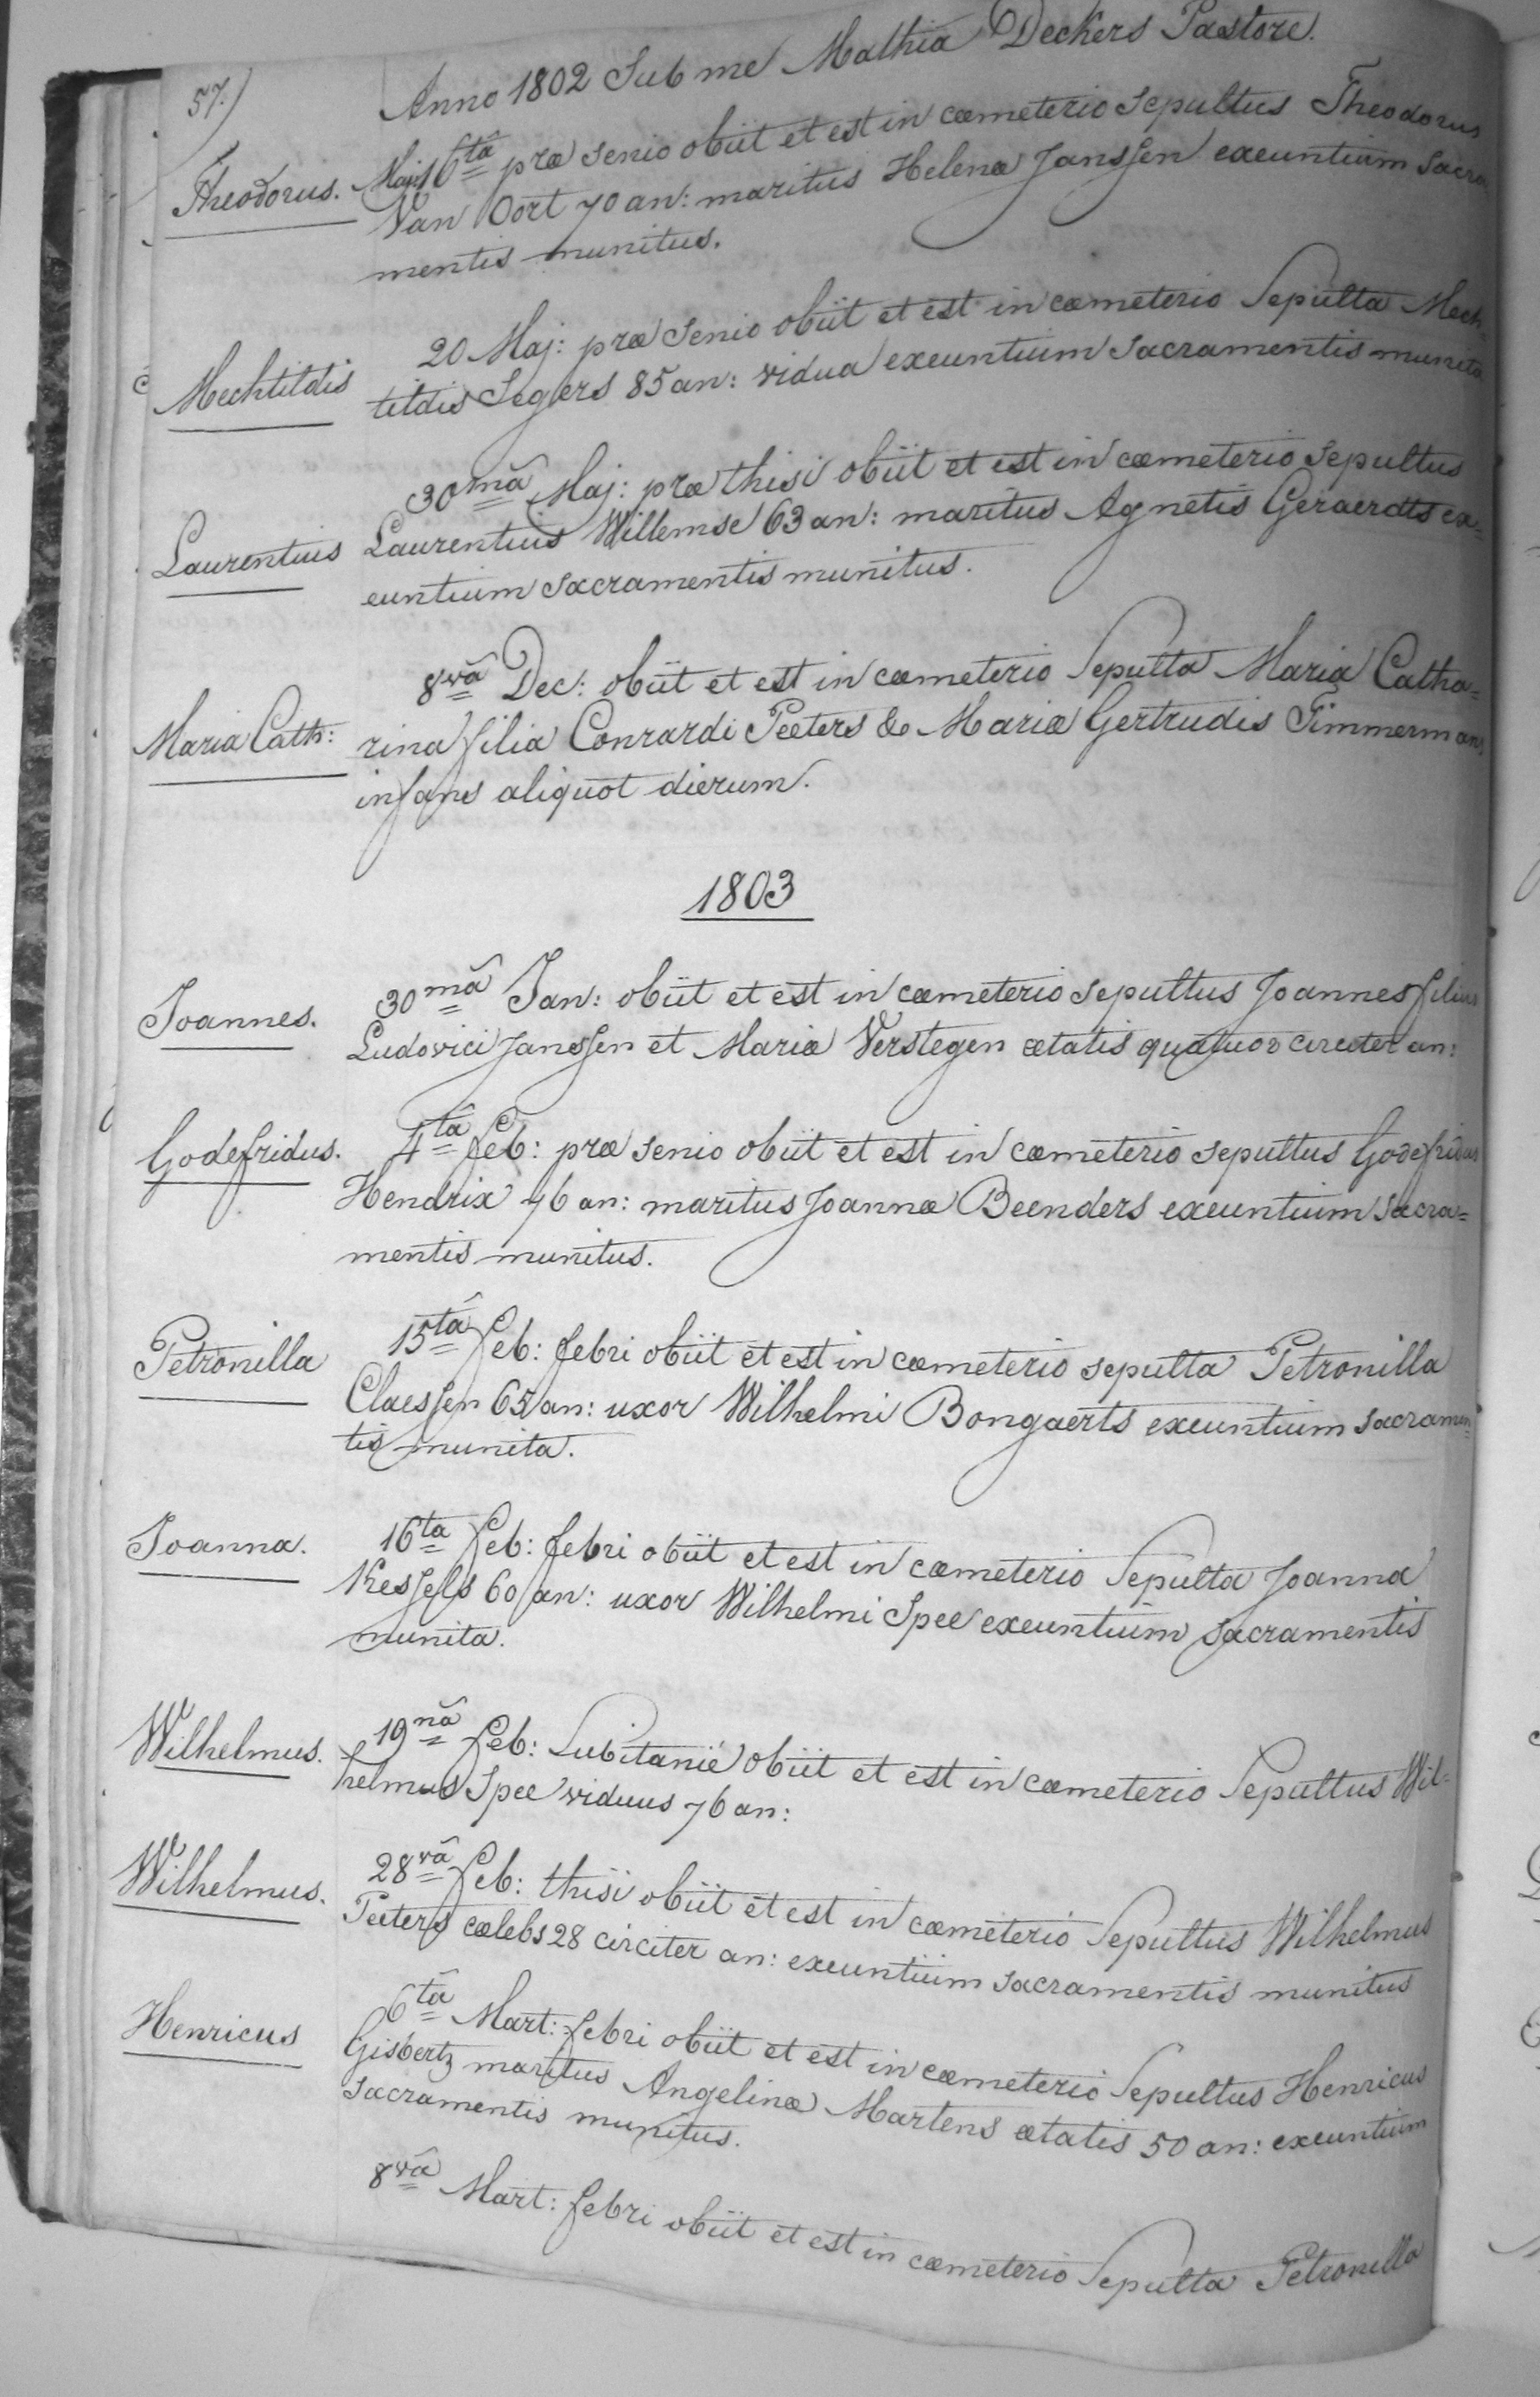 57.)
Anno 1802 Sub me Mathia Deckers Pastore.
Theodorus. Maji 6tâ præ senio obiit et est in cœmeterio sepultus Theodorus
Van Oort 70 an: maritus Helenæ Janssen exeuntium Sacra
mentis munitus.
20 Maj: præ senio obiit et est in cœmeterio Sepulta Mech=
Mechtildis tildis Segers 85 an: vidua exeuntium Sacramentis munita
30mâ Maj: præ thisi obiit et est in cœmeterio sepultus
Laurentius Laurentius Willemse 63 an: maritus Agnetis Geraerdts ex=
euntium sacramentis munitus.
8vâ Dec: obiit et est in cœmeterio Sepulta Maria Catha=
Maria Cath: rina filia Conrardi Peeters & Mariæ Gertrudis Timmermans
infans aliquot dierum.
1803
Joannes. 30mâ Jan: obiit et est in cœmeterio sepultus Joannes filius
Ludovici Janssen et Mariæ Verstegen ætatis quatuor circiter an:
Godefridus. 4tâ feb: præ senio obiit et est in cœmeterio sepultus Godefridus
Hendrix 76 an: maritus Joannæ Beenders exeuntium sacra=
mentis munitus.
Petronilla 15tâ feb: febri obiit et est in cœmeterio sepulta Petronilla
Claessen 65 an: uxor Wilhelmi Bongaerts exeuntium sacramen=
tis munita.
Joanna. 16ta feb: febri obiit et est in cœmeterio Sepulta Joanna
Kessels 60 an: uxor Wilhelmi Spee exeuntium sacramentis
munita.
Wilhelmus. 19nâ feb: Subitanië obiit et est in cœmeterio Sepultus Wil=
helmus Spee viduus 76 an:
Wilhelmus. 28vâ feb: thisi obiit et est in cœmeterio Sepultus Wilhelmus
Peeters cœlebs 28 circiter an: exeuntium sacramentis munitus
Henricus 6tâ Mart: febri obiit et est in cœmeterio Sepultus Henricus
Gisbertz maritus Angelinæ Martens ætatis 50 an: exeuntium
sacramentis munitus.
8vâ Mart: febri obiit et est in cœmeterio Sepulta Petronilla